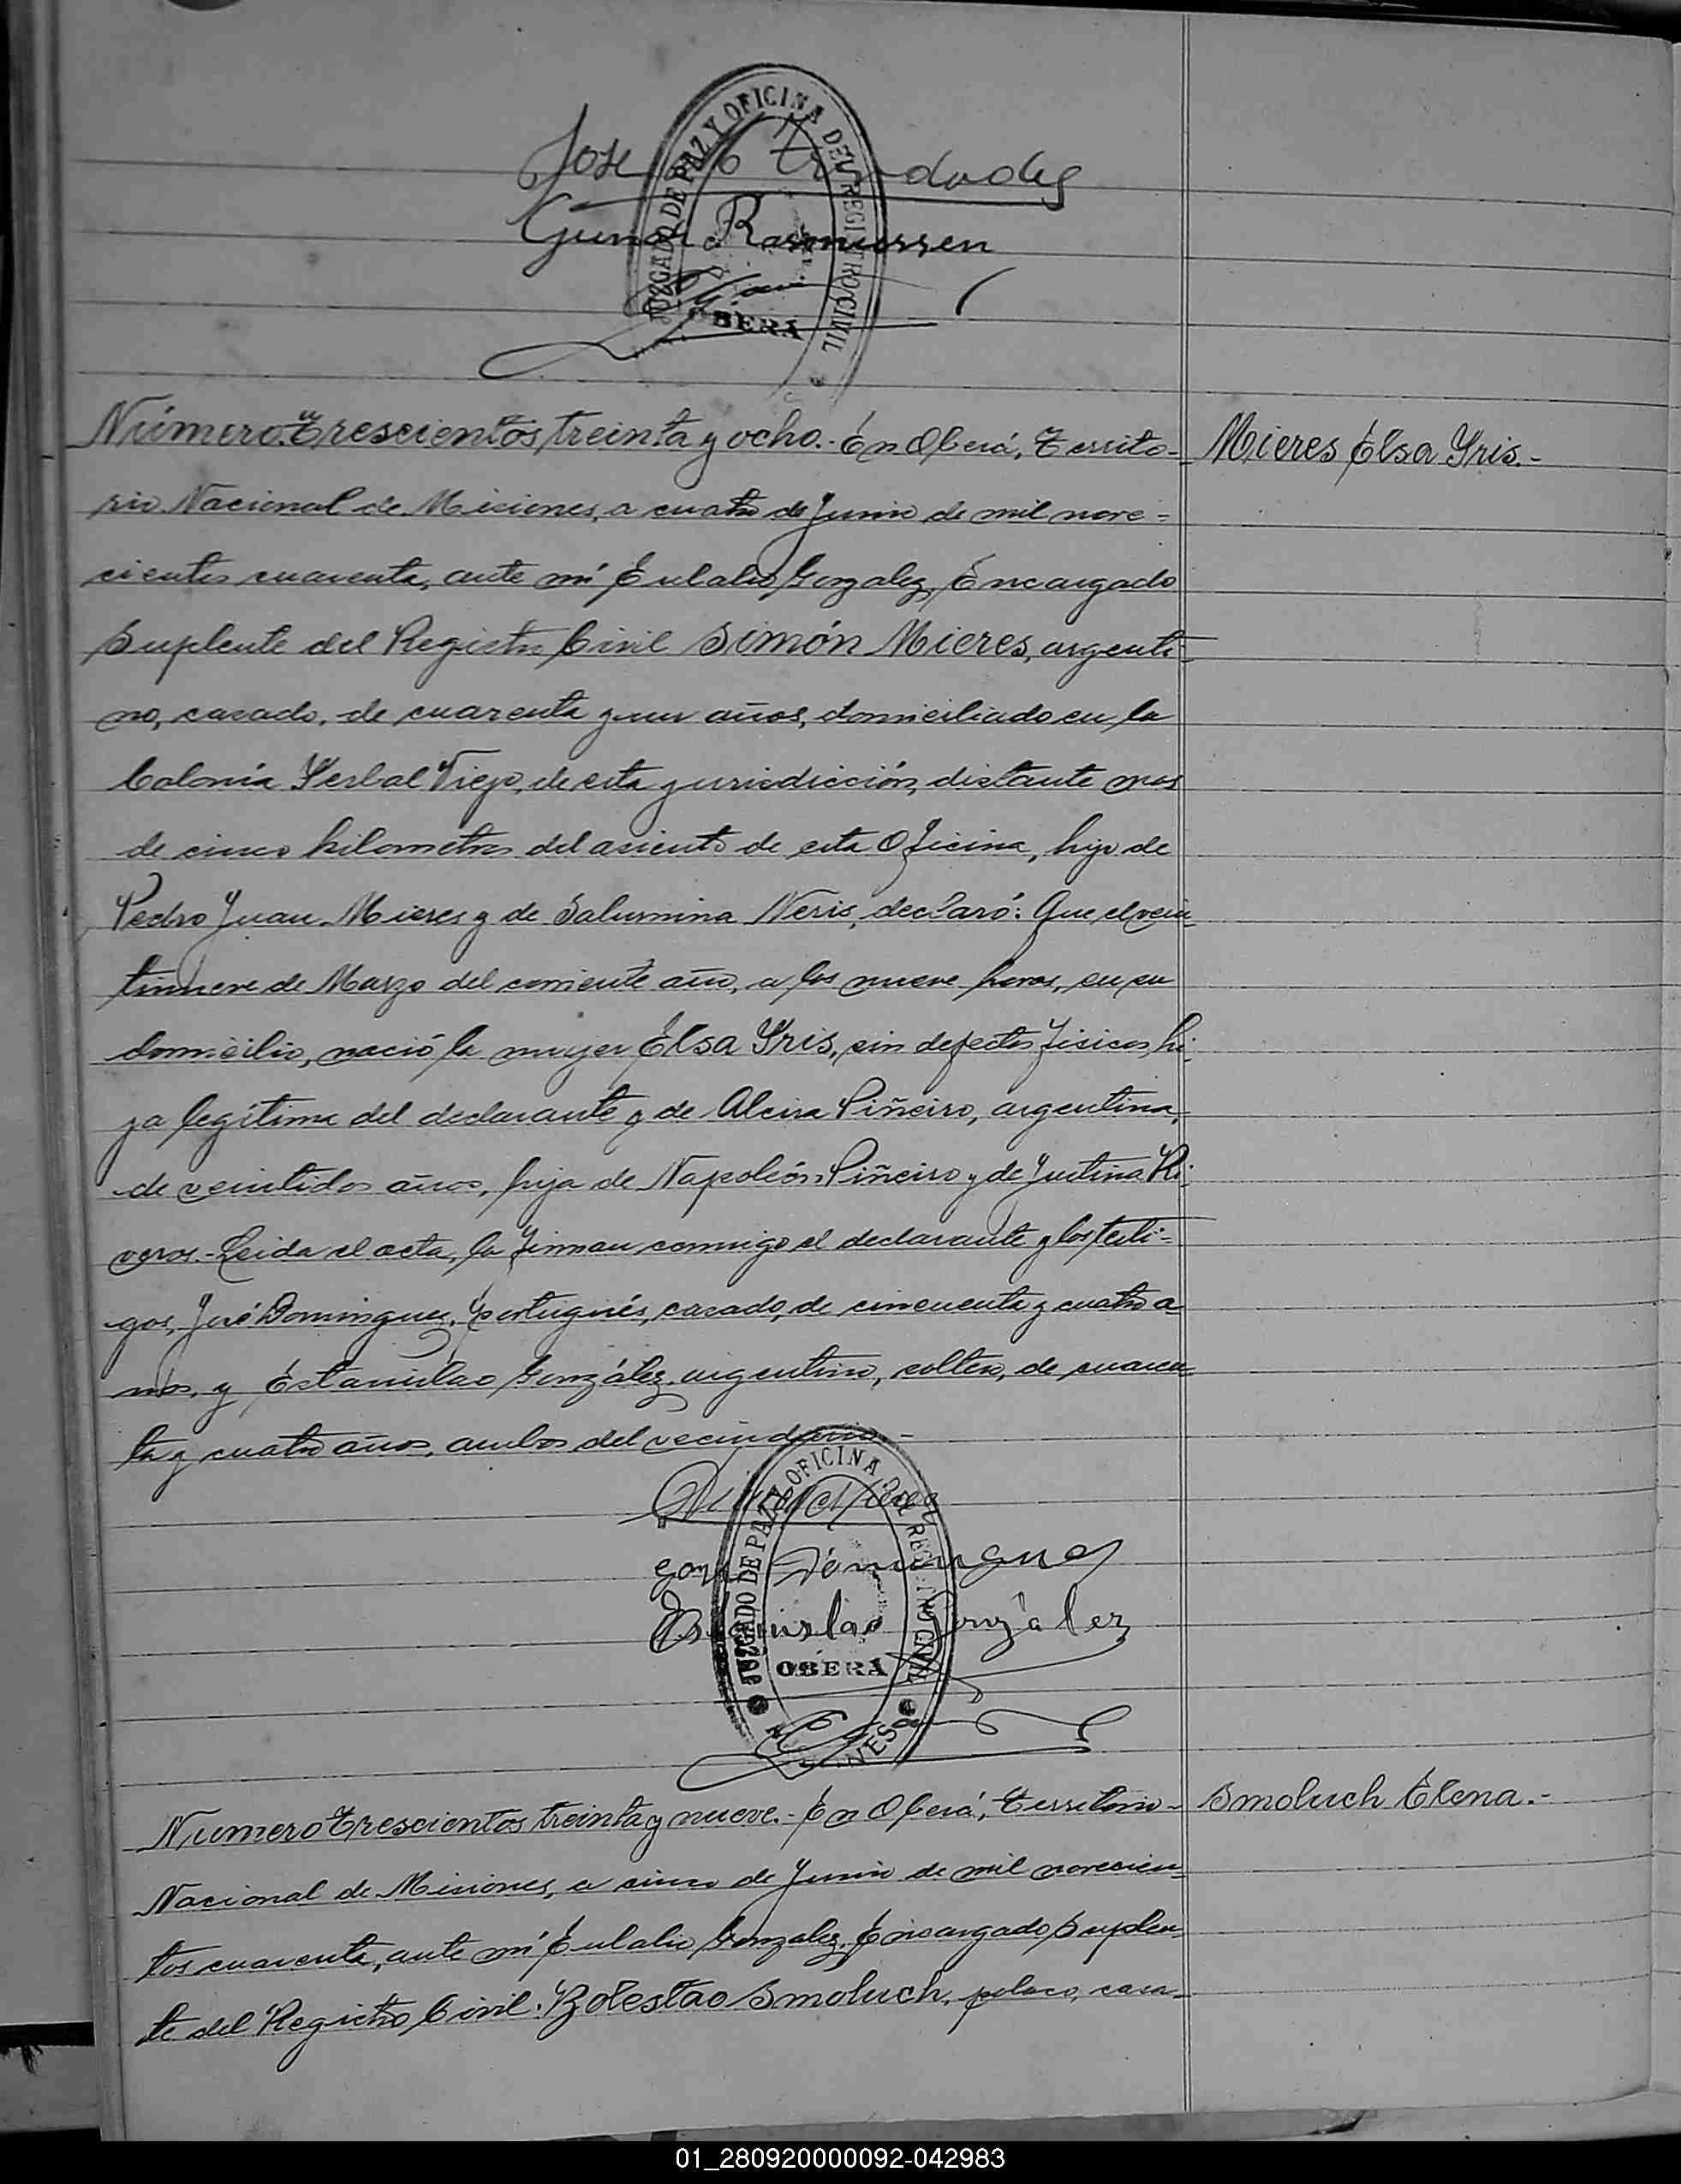 Jose
Gunar Rasmussen
JUZGADO DE PAZ Y OFICINA DEL REGISTRO CIVIL
OBERA
Número Trescientos treinta y ocho.- En Oberá, Territo- Mieres Elsa Yris.-
rio Nacional de Misiones, a cuatro de Junio de mil nove-
cientos cuarenta, ante mí Eulalio Gonzalez, Encargado
Suplente del Registro Civil Simón Mieres, argenti-
no, casado, de cuarenta y un años, domiciliado en la
Colonia Yerbal Viejo, de esta jurisdicción, distante mas
de cinco kilometros del asiento de esta Oficina, hijo de
Pedro Juan Mieres y de Salumina Neris, declaró: Que el vein-
tinueve de Marzo del corriente año, a las nueve horas, en su
domicilio, nació la mujer Elsa Yris, sin defectos fisicos, hi-
ja legítima del declarante y de Alcira Piñeiro, argentina,
de veintidos años, hija de Napoleón Piñeiro y de Justina Ri-
veros.- Leida el acta, la firman conmigo el declarante y los testi-
gos, José Dominguez, portugués, casado, de cincuenta y cuatro a-
ños, y Estanislao González, argentino, soltero, de cuaren-
ta y cuatro años, ambos del vecindario.-
Dominguez
Estanislao González
JUZGADO DE PAZ Y OFICINA DEL REGISTRO CIVIL
OBERA
Numero Trescientos treinta y nueve.- En Oberá, Territorio- Smoluch Elena.-
Nacional de Misiones, a cinco de Junio de mil novecien-
tos cuarenta, ante mí Eulalio Gonzalez, Encargado Suplen-
te del Registro Civil. Boleslao Smoluch, polaco, casa-
01_280920000092-042983